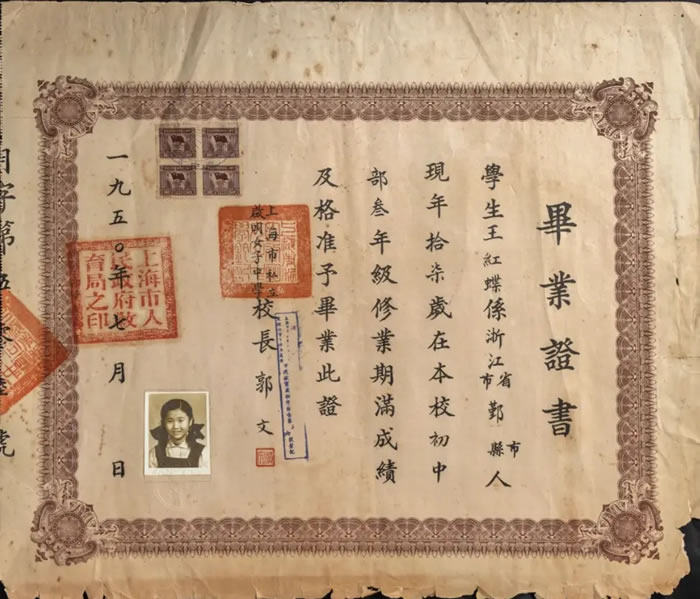 畢業證書
學生王紅蝶係浙江省市鄞縣市人
現年拾柒歲在本校初中
部叁年級修業期滿成績
及格准予畢業此證
上海市私立
啟明女子中學
校長郭文
一九五〇年七月日
上海市人民政府教育局之印